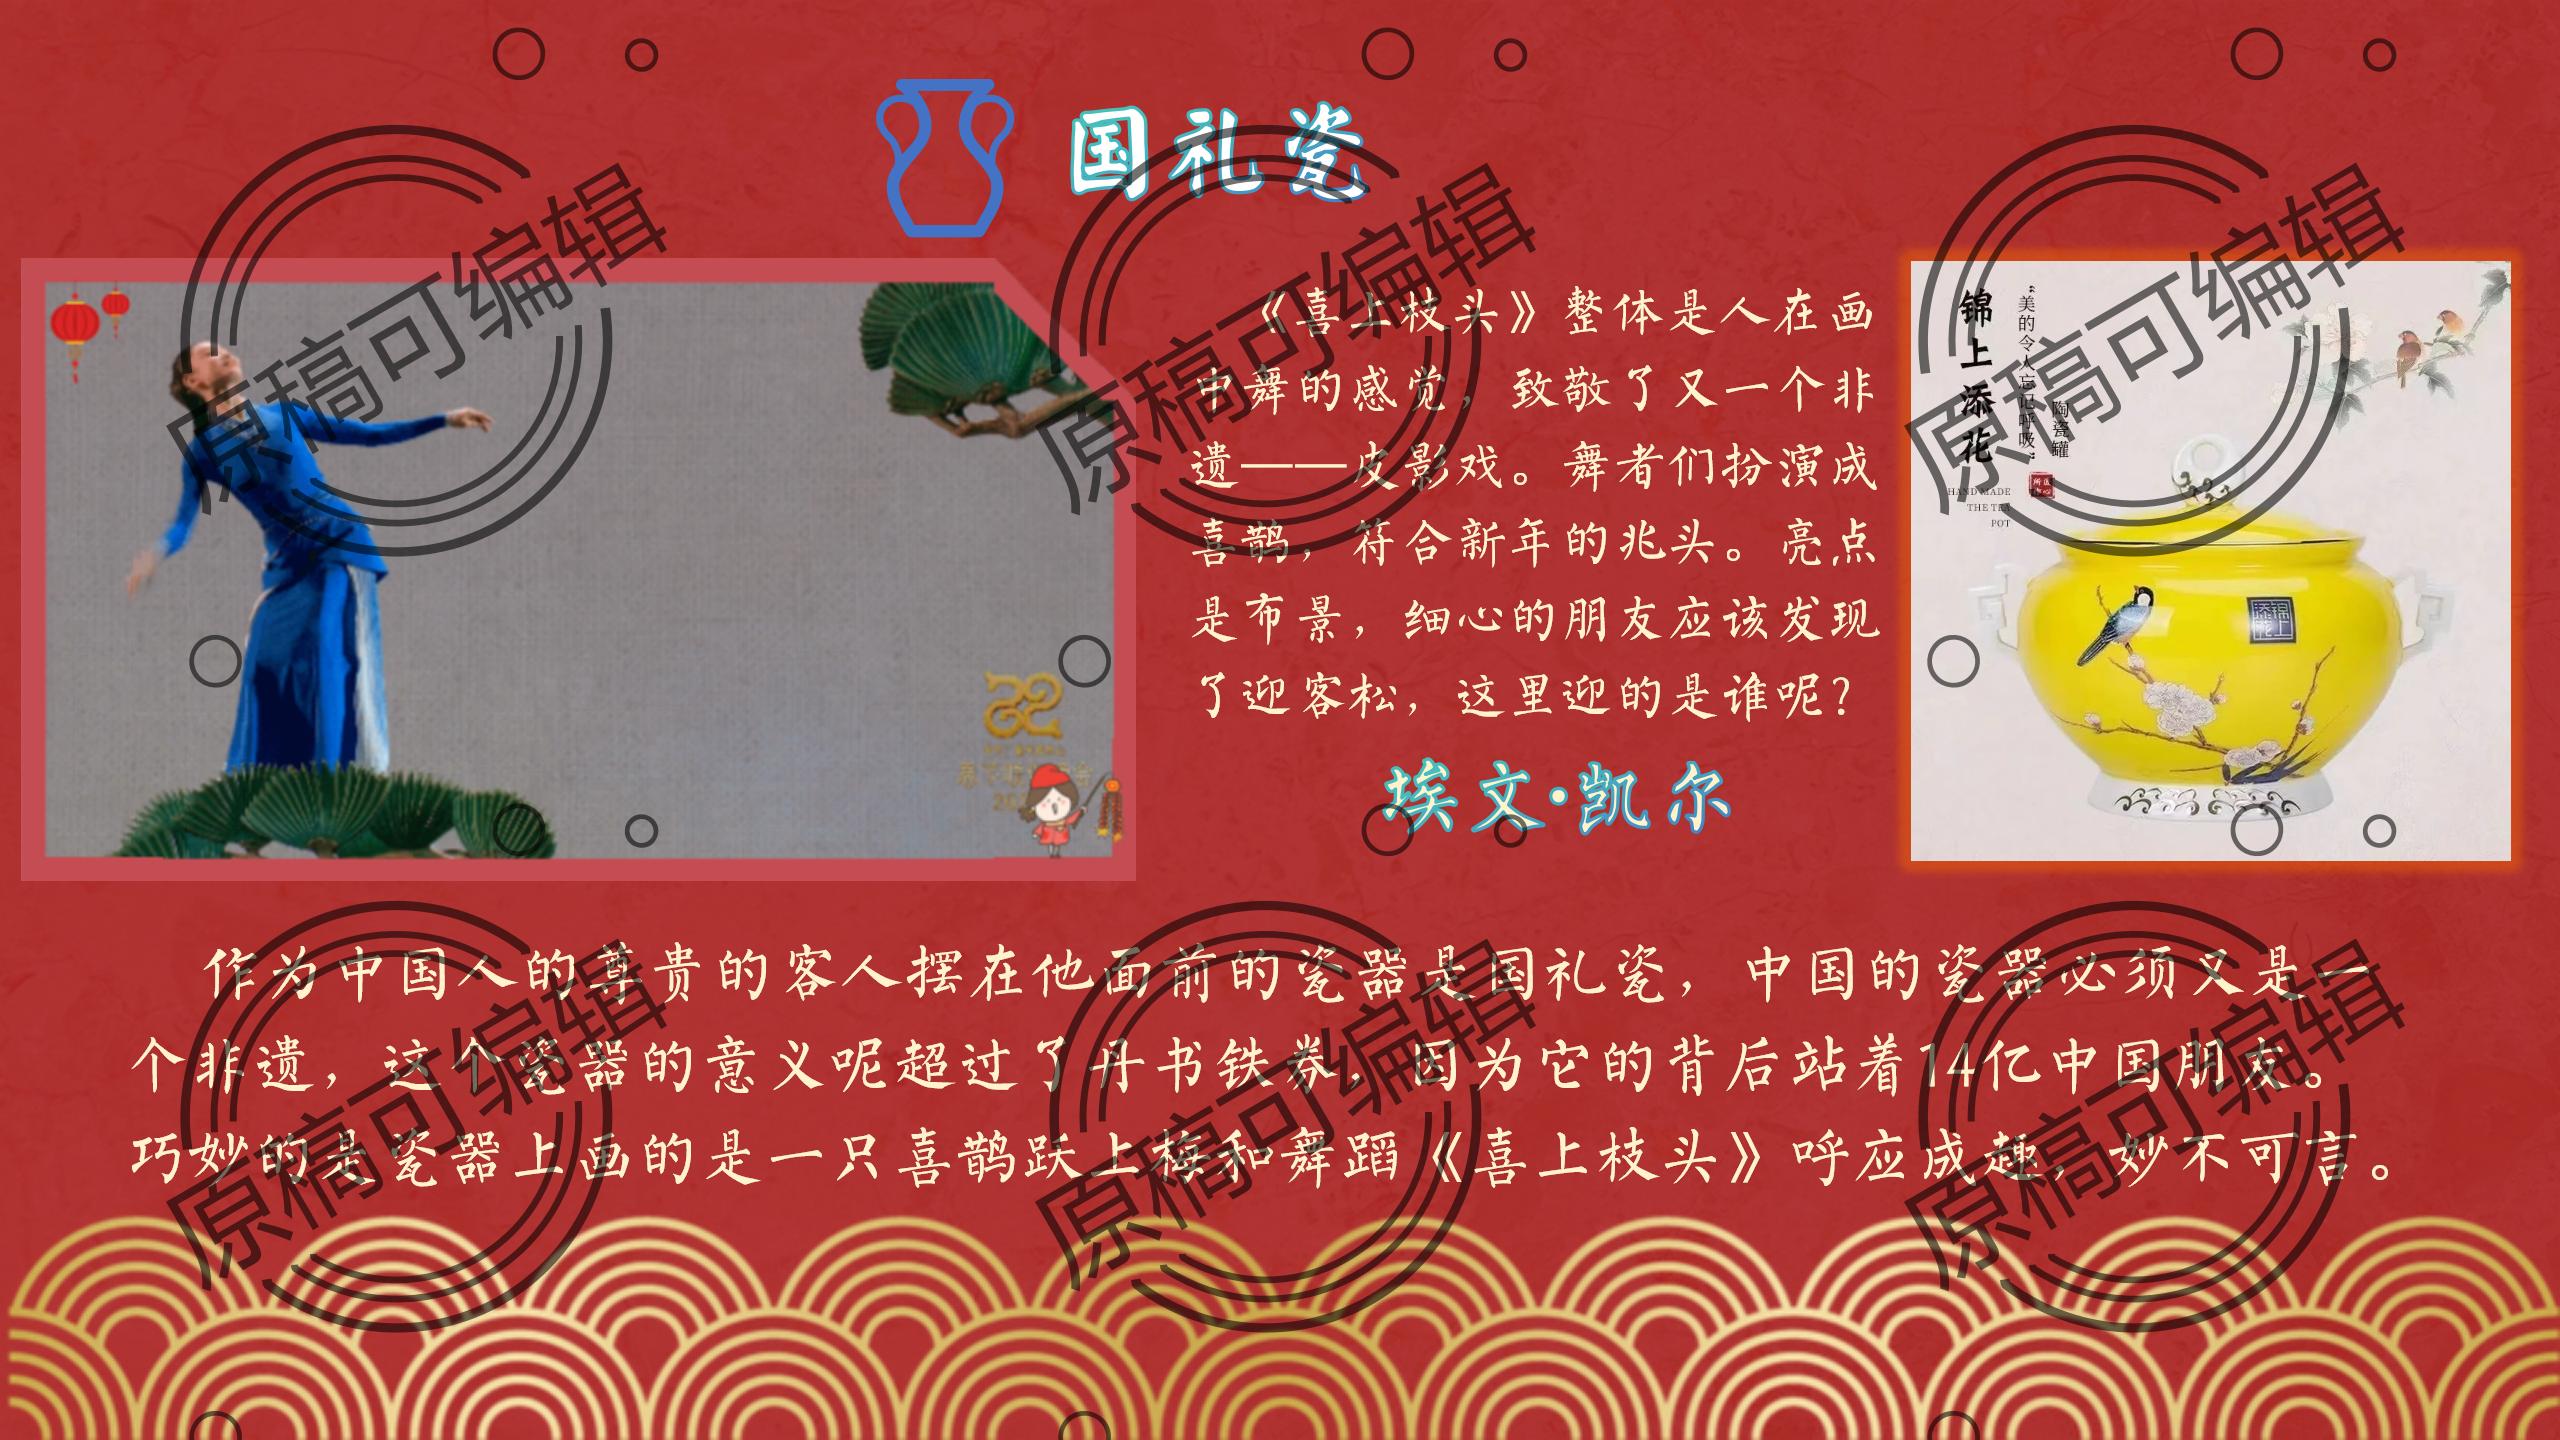 国礼瓷
《喜上枝头》整体是人在画
中舞的感觉，致敬了又一个非
遗——皮影戏。舞者们扮演成
喜鹊，符合新年的兆头。亮点
是布景，细心的朋友应该发现
了迎客松，这里迎的是谁呢？
埃文·凯尔
锦上添花
“美的令人忘记呼吸”
陶瓷罐
HAND MADE
THE TEA
POT
锦上添花
作为中国人的尊贵的客人摆在他面前的瓷器是国礼瓷，中国的瓷器必须又是一
个非遗，这个瓷器的意义呢超过了丹书铁券，因为它的背后站着14亿中国朋友。
巧妙的是瓷器上画的是一只喜鹊跃上梅和舞蹈《喜上枝头》呼应成趣，妙不可言。
原稿可编辑
原稿可编辑
原稿可编辑
原稿可编辑
原稿可编辑
原稿可编辑